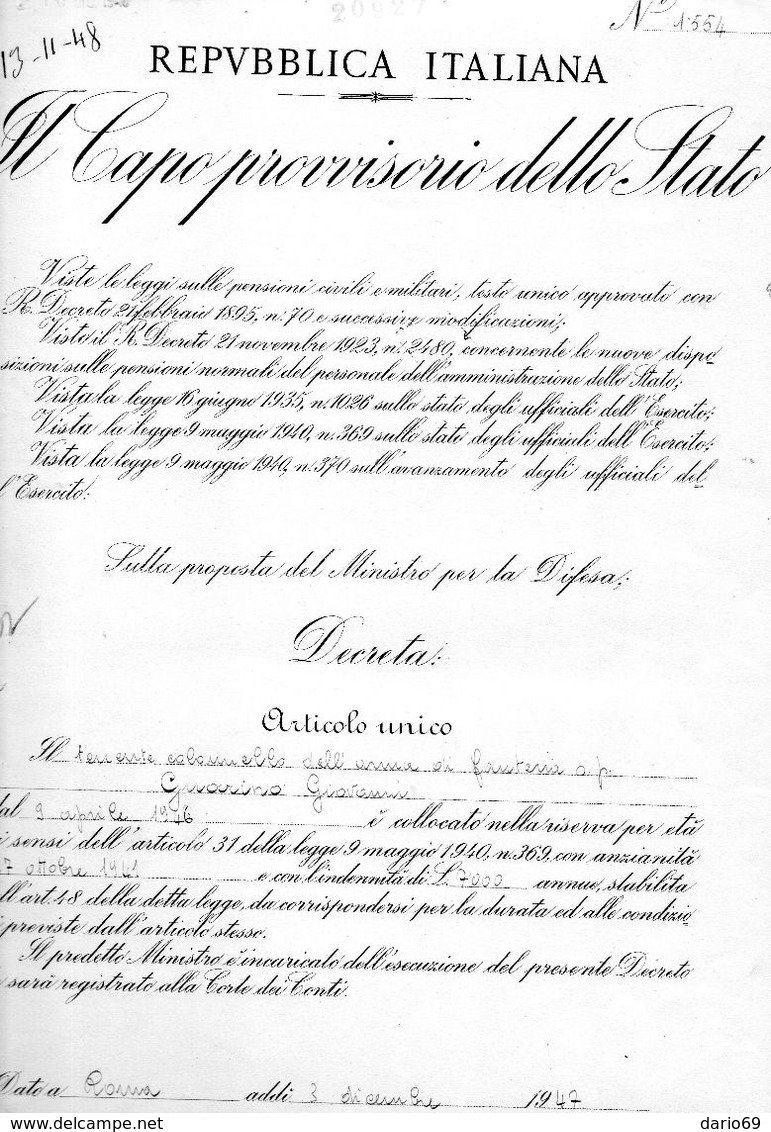 20927
Nº 1554
13-11-48
REPVBBLICA ITALIANA
Il Capo provvisorio dello Stato
Viste le leggi sulle pensioni civili e militari, testo unico approvato con
R. Decreto 21 febbraio 1895, n. 70 e successive modificazioni;
Visto il R. Decreto 21 novembre 1923, n. 2480, concernente le nuove dispo
sizioni sulle pensioni normali del personale dell'amministrazione dello Stato;
Vista la legge 16 giugno 1935, n. 1026 sullo stato degli ufficiali dell'Esercito;
Vista la legge 9 maggio 1940, n. 369 sullo stato degli ufficiali dell'Esercito;
Vista la legge 9 maggio 1940, n. 370 sull'avanzamento degli ufficiali del
l'Esercito:
Sulla proposta del Ministro per la Difesa;
Decreta:
Articolo unico
Il tenente colonnello dell'arma di fanteria a.p.
Guarino Giovanni
dal 9 aprile 1946 è collocato nella riserva per età
i sensi dell'articolo 31 della legge 9 maggio 1940, n. 369, con anzianità
7 ottobre 1941 e con l'indennità di L. 7000 annue, stabilita
ll'art. 48 della detta legge, da corrispondersi per la durata ed alle condizio
i previste dall'articolo stesso.
Il predetto Ministro è incaricato dell'esecuzione del presente Decreto
e sarà registrato alla Corte dei Conti.
Dato a Roma addì 3 dicembre 1947
delcampe.net
dario69